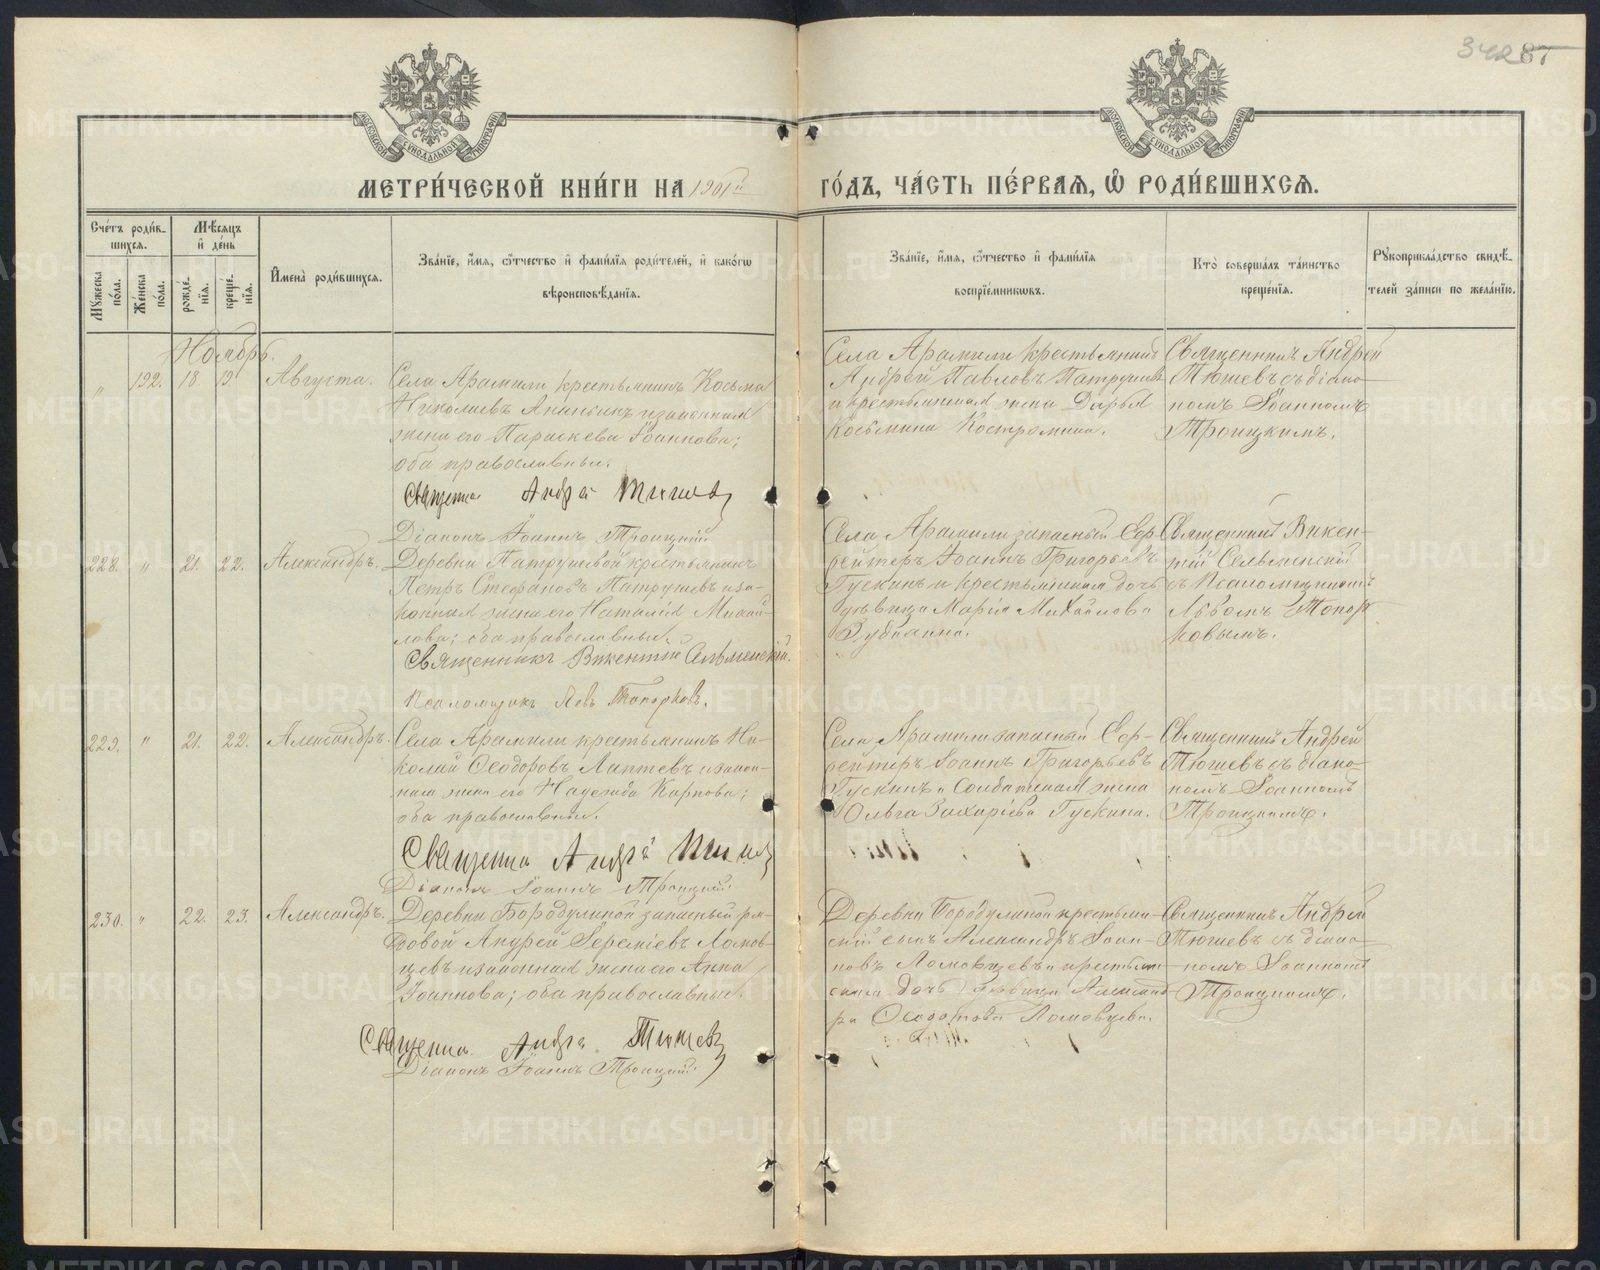 342 87
МОСКОВСКОЙ СѴНОДАЛЬНОЙ ТИПОГРАФІИ
МОСКОВСКОЙ СѴНОДАЛЬНОЙ ТИПОГРАФІИ
МЕТРИ́ЧЕСКОЙ КНИ́ГИ НА 1901й ГО́ДЪ, ЧА́СТЬ ПЕ́РВАЯ, Ѽ РОДИ́ВШИХСЯ.
Сче́тъ роди́в-
шихся.
Мꙋ́жеска по́ла.
Же́нска по́ла.
Мѣ́сяцъ
и҆ де́нь
рожде́-
нїя.
креще́-
нїя.
И҆мена̀ роди́вшихся.
Зва́нїе, и҆́мя, ѻ҆́тчество и҆ фами́лїя роди́телей, и҆ како́гѡ
вѣроисповѣ́данїя.
Зва́нїе, и҆́мя, ѻ҆́тчество и҆ фами́лїя
воспрїе́мникѡвъ.
Кто̀ соверша́лъ та́инство
креще́нїя.
Рꙋкоприкла́дство свидѣ́-
телей за́писи по жела́нїю.
Ноябрь.
" 192. 18 19 Августа.
Села Арамили крестьянинъ Косьма
Николаевъ Ананьинъ и законная
жена его Параскева Іоаннова;
оба православные.
Священникъ Андрей Тюшевъ
Діаконъ Іоаннъ Троицкій
Села Арамили крестьянинъ
Андрей Павловъ Патрушевъ
и крестьянская жена Дарья
Косьмина Костромина.
Священникъ Андрей
Тюшевъ съ діако-
номъ Іоанномъ
Троицкимъ.
228. " 21. 22. Александръ.
Деревни Патрушевой крестьянинъ
Петръ Стефановъ Патрушевъ и за-
конная жена его Наталія Михай-
лова; оба православные.
Священникъ Викентій Сельменскій.
Псаломщикъ Левъ Топорковъ.
Села Арамили запасный Еф-
рейторъ Іоаннъ Григорьевъ
Гускинъ и крестьянская дочь
дѣвица Марія Михайлова
Зубакина.
Священникъ Викен-
тій Сельменскій
съ Псаломщикомъ
Львомъ Топор-
ковымъ.
229. " 21. 22. Александръ.
Села Арамили крестьянинъ Ни-
колай Ѳеодоровъ Лаптевъ и закон-
ная жена его Надежда Карпова;
оба православные.
Священникъ Андрей Тюшевъ
Діаконъ Іоаннъ Троицкій
Села Арамили запасный Еф-
рейторъ Іоаннъ Григорьевъ
Гускинъ и Солдатская жена
Ольга Захаріева Гускина.
Священникъ Андрей
Тюшевъ съ діако-
номъ Іоанномъ
Троицкимъ.
230. " 22. 23. Александръ.
Деревни Бородулиной запасный ря-
довой Андрей Іереміевъ Ломов-
цевъ и законная жена его Анна
Іоаннова; оба православные.
Священникъ Андрей Тюшевъ
Діаконъ Іоаннъ Троицкій
Деревни Бородулиной крестьян-
скій сынъ Александръ Іоан-
новъ Ломовцевъ и крестьян-
ская дочь дѣвица Александ-
ра Ѳеодотова Ломовцева.
Священникъ Андрей
Тюшевъ съ діако-
номъ Іоанномъ
Троицкимъ.
METRIKI.GASO-URAL.RU